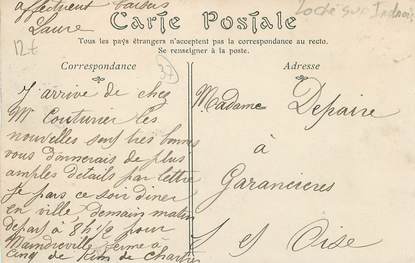 affectueux baisers
Laure
Carte Postale
Tous les pays étrangers n'acceptent pas la correspondance au recto.
Se renseigner à la poste.
Loché sur Indrois
12f
37
Correspondance
J'arrive de chez
Mr Couturier les
nouvelles sont très bonnes
vous donnerais de plus
amples détails par lettre
je pars ce soir diner
en ville, demain matin
départ à 8h1/2 pour
Maindreville ferme à
cinq de Kim de Chartres
Adresse
Madame Depaire
à
Garancieres
S et Oise